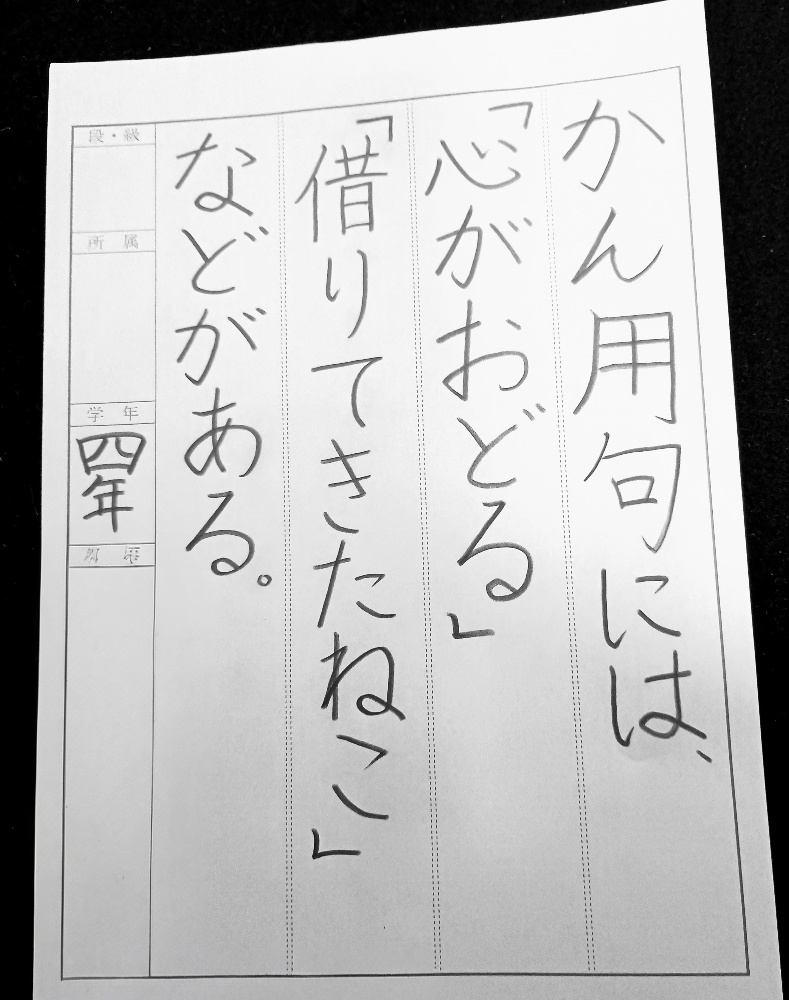 かん用句には、
「心がおどる」
「借りてきたねこ」
などがある。
段・級
所属
学年
四年